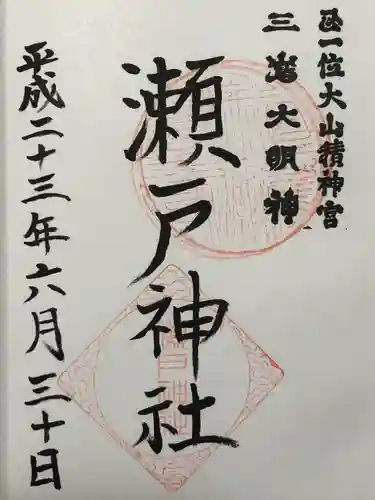 正一位大山積神宮
三島大明神
瀬戸神社
平成二十三年六月三十日